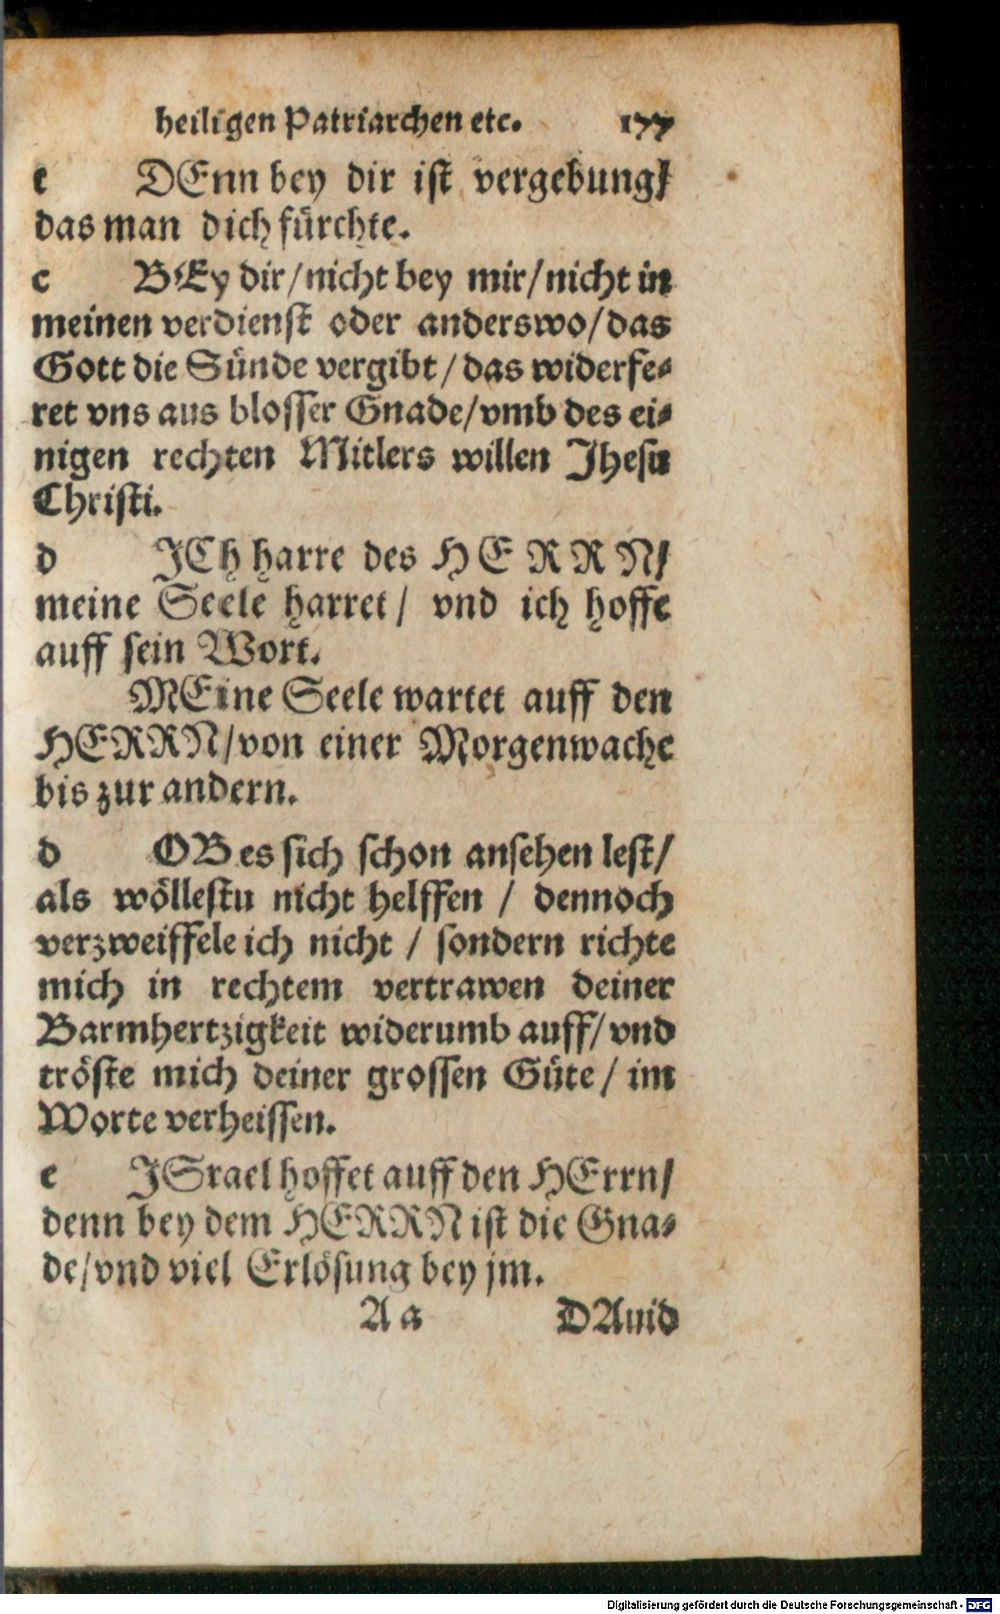 heiligen Patriarchen etc. 177
c DEnn bey dir ist vergebung/
das man dich fürchte.
c BEy dir/nicht bey mir/nicht in
meinen verdienst oder anderswo/das
Gott die Sünde vergibt/das widerfe⸗
ret vns aus blosser Gnade/vmb des ei⸗
nigen rechten Mitlers willen Jhesu
Christi.
d JCh harre des HERRN/
meine Seele harret/ vnd ich hoffe
auff sein Wort.
MEine Seele wartet auff den
HERRN/von einer Morgenwache
bis zur andern.
d OB es sich schon ansehen lest/
als wöllestu nicht helffen / dennoch
verzweiffele ich nicht / sondern richte
mich in rechtem vertrawen deiner
Barmhertzigkeit widerumb auff/vnd
tröste mich deiner grossen Güte/ im
Worte verheissen.
e JSrael hoffet auff den HErrn/
denn bey dem HERRN ist die Gna⸗
de/vnd viel Erlösung bey jm.
Aa DAuid
Digitalisierung gefördert durch die Deutsche Forschungsgemeinschaft - DFG